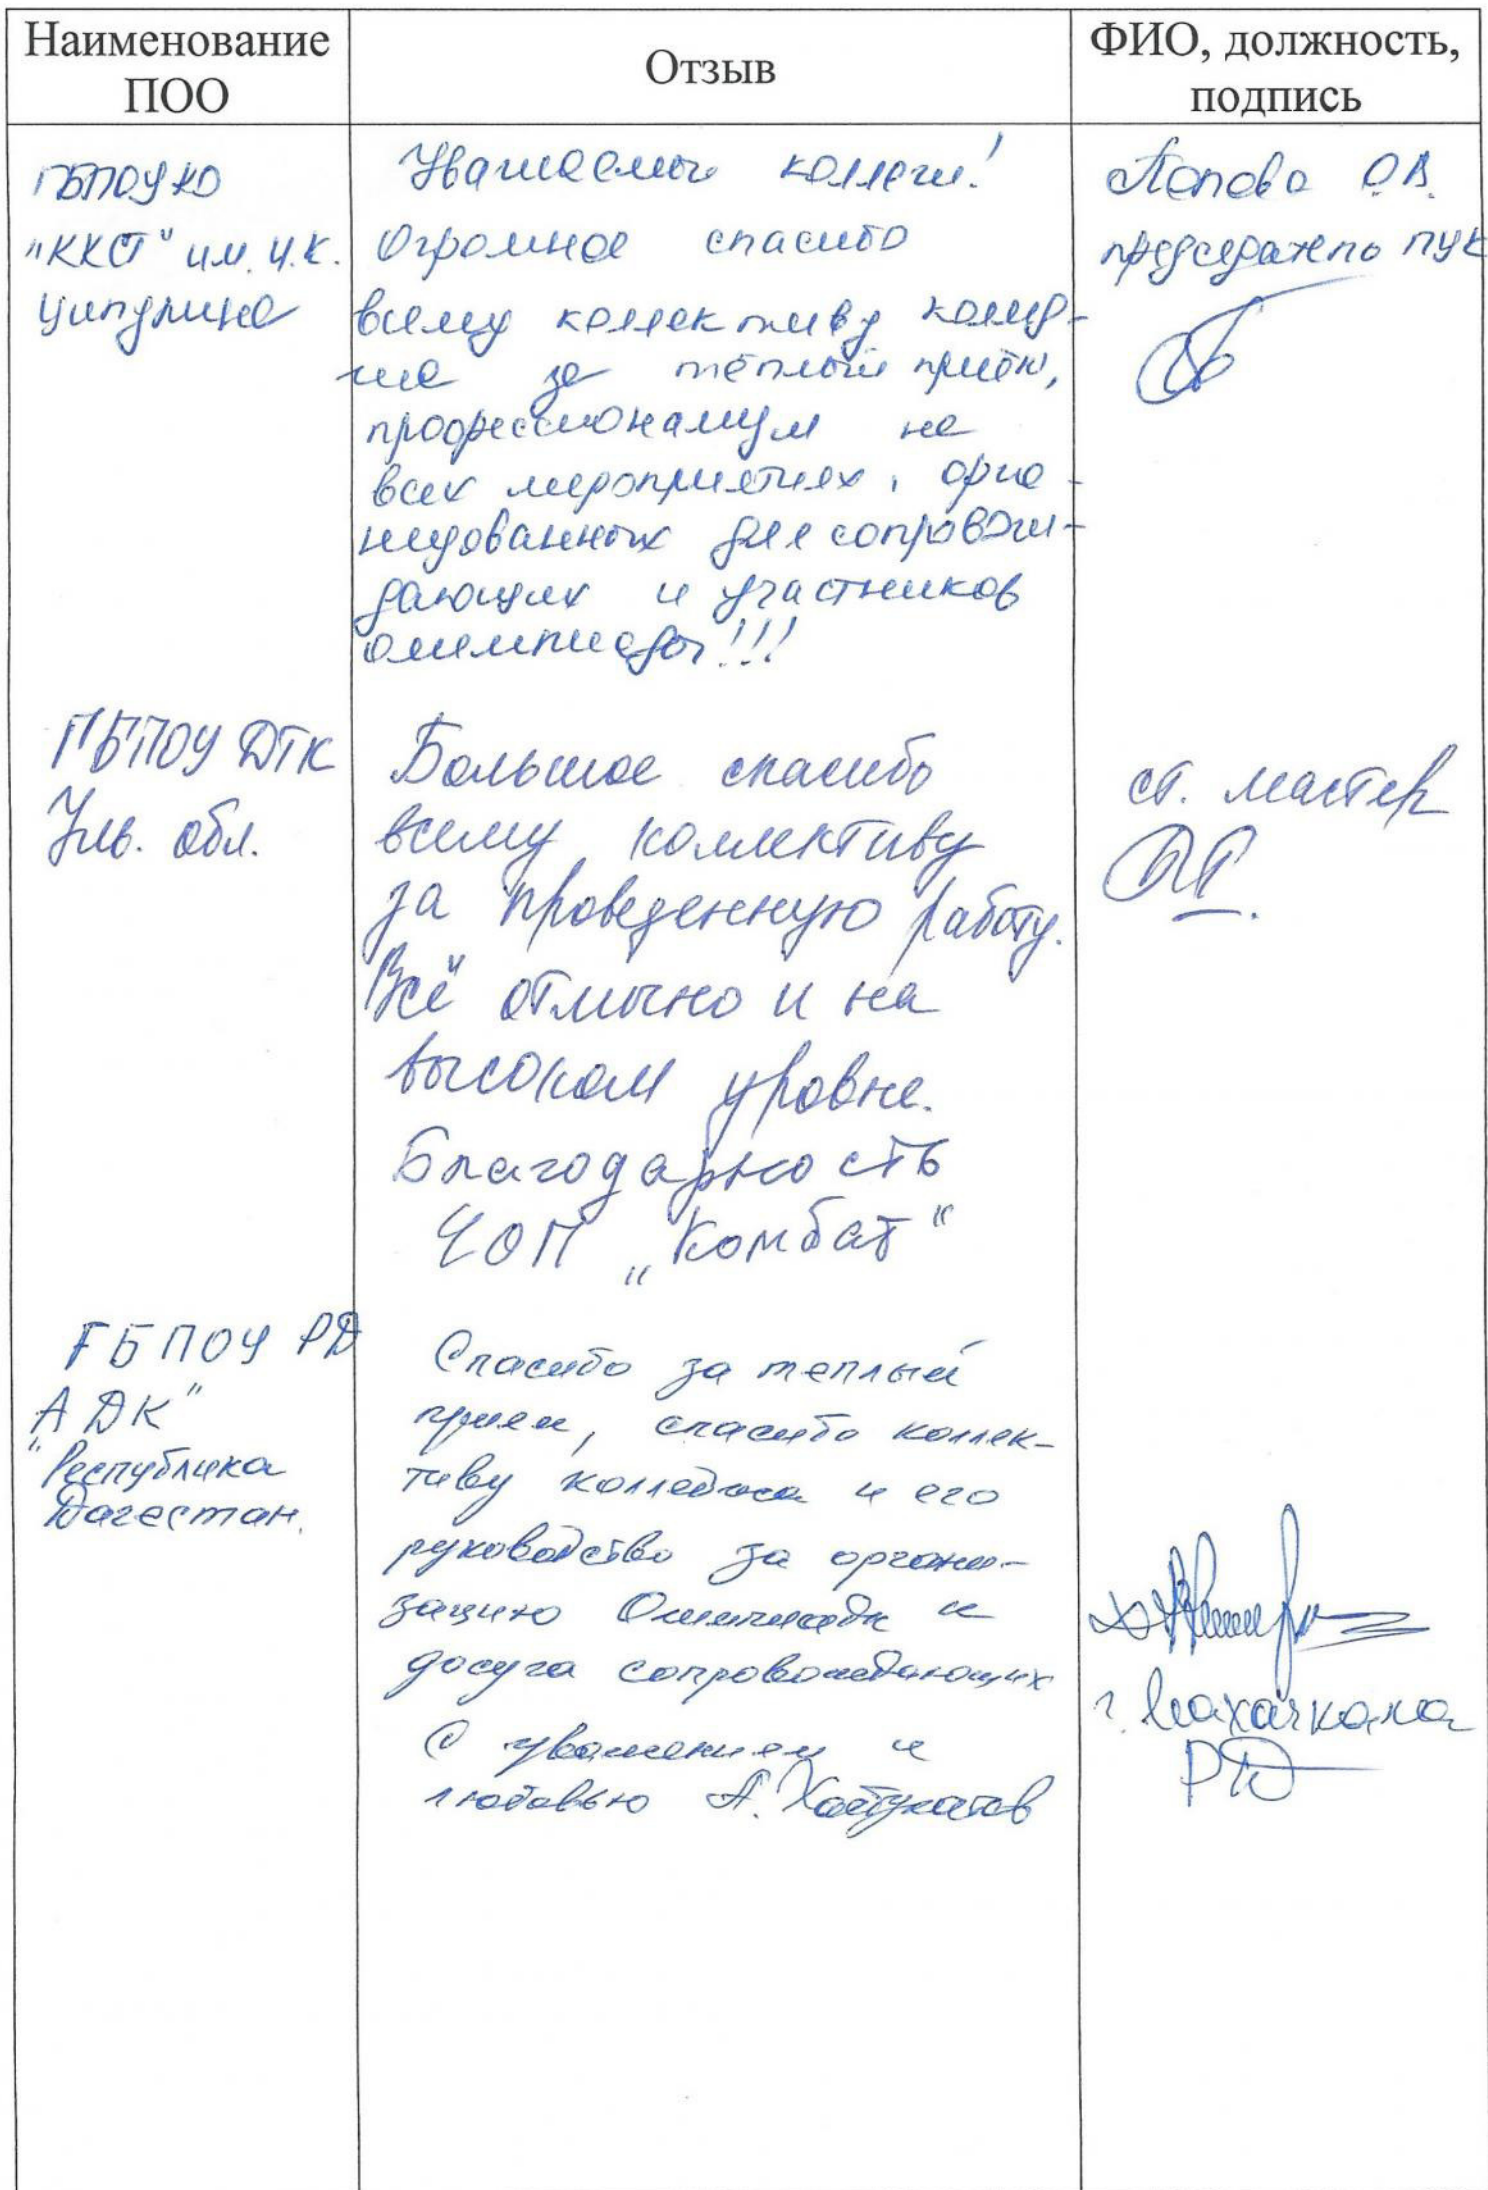 Наименование
ПОО
Отзыв
ФИО, должность,
подпись
ГБПОУ КО
"ККСТ" им. И.К.
Ципулина
Уважаемые коллеги!
Огромное спасибо
всему коллективу коллед-
жа за тёплый приём,
профессионализм на
всех мероприятиях, орга-
низованных для сопровож-
дающих и участников
олимпиады!!!
Попова О.В.
председатель ПЦК
ГБПОУ ДТК
Ульв. обл.
Большое спасибо
всему коллективу
за проведенную работу.
Всё отлично и на
высоком уровне.
Благодарность
ЧОП „Комбат“
ст. мастер
ГБПОУ РД
„АДК"
Республика
Дагестан.
Спасибо за теплый
прием, спасибо коллек-
тиву колледжа и его
руководство за органи-
зацию Олимпиады и
досуга сопровождающих
С уважением и
любовью А.
г. Махачкала
РД